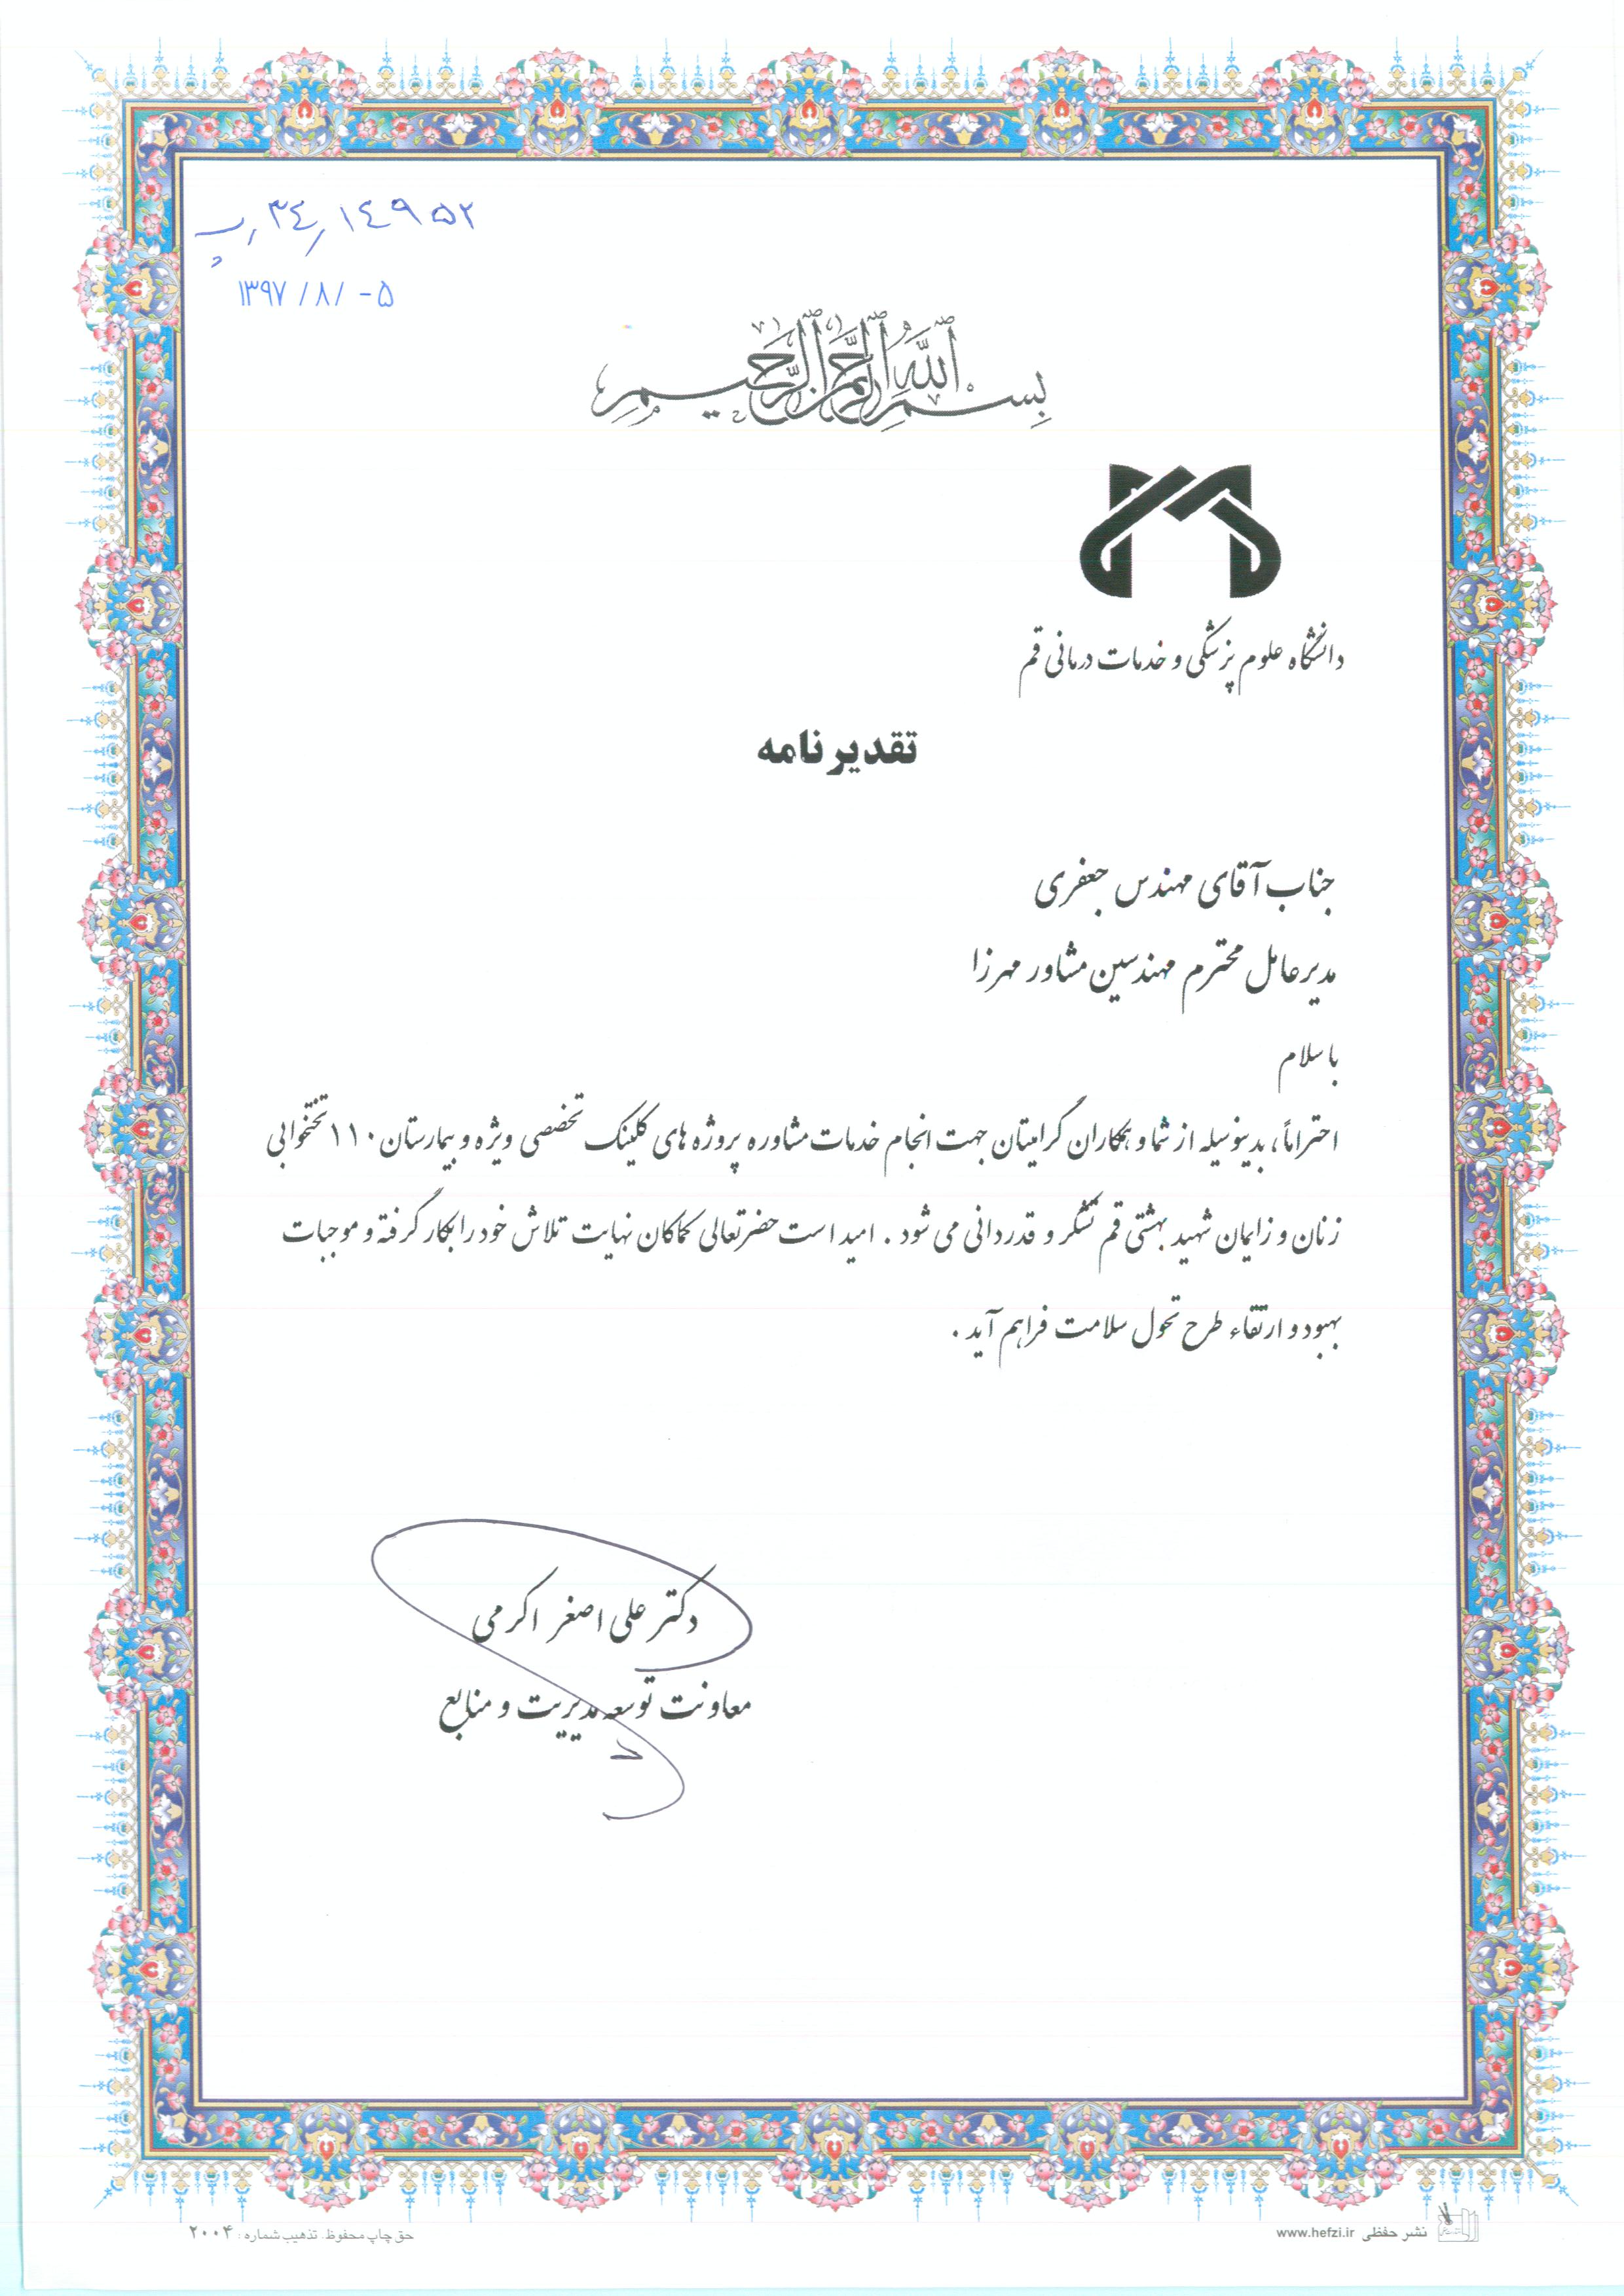 ۳۴٫۱۴۹۵۲٫پ
۱۳۹۷/۸/-۵
بسم الله الرحمن الرحیم
دانشگاه علوم پزشکی و خدمات درمانی قم
تقدیرنامه
جناب آقای مهندس جعفری
مدیرعامل محترم مهندسین مشاور مهرزا
با سلام
احتراماً، بدینوسیله از شما و همکاران گرامیتان جهت انجام خدمات مشاوره پروژه های کلینک تخصصی ویژه و بیمارستان ۱۱۰ تختخوابی
زنان و زایمان شهید بهشتی قم تشکر و قدردانی می شود . امید است حضرتعالی کماکان نهایت تلاش خود را بکار گرفته و موجبات
بهبود و ارتقاء طرح تحول سلامت فراهم آید .
دکتر علی اصغر اکرمی
معاونت توسعه مدیریت و منابع
نشر حفظی www.hefzi.ir
حق چاپ محفوظ. تذهیب شماره : ۲۰۰۴